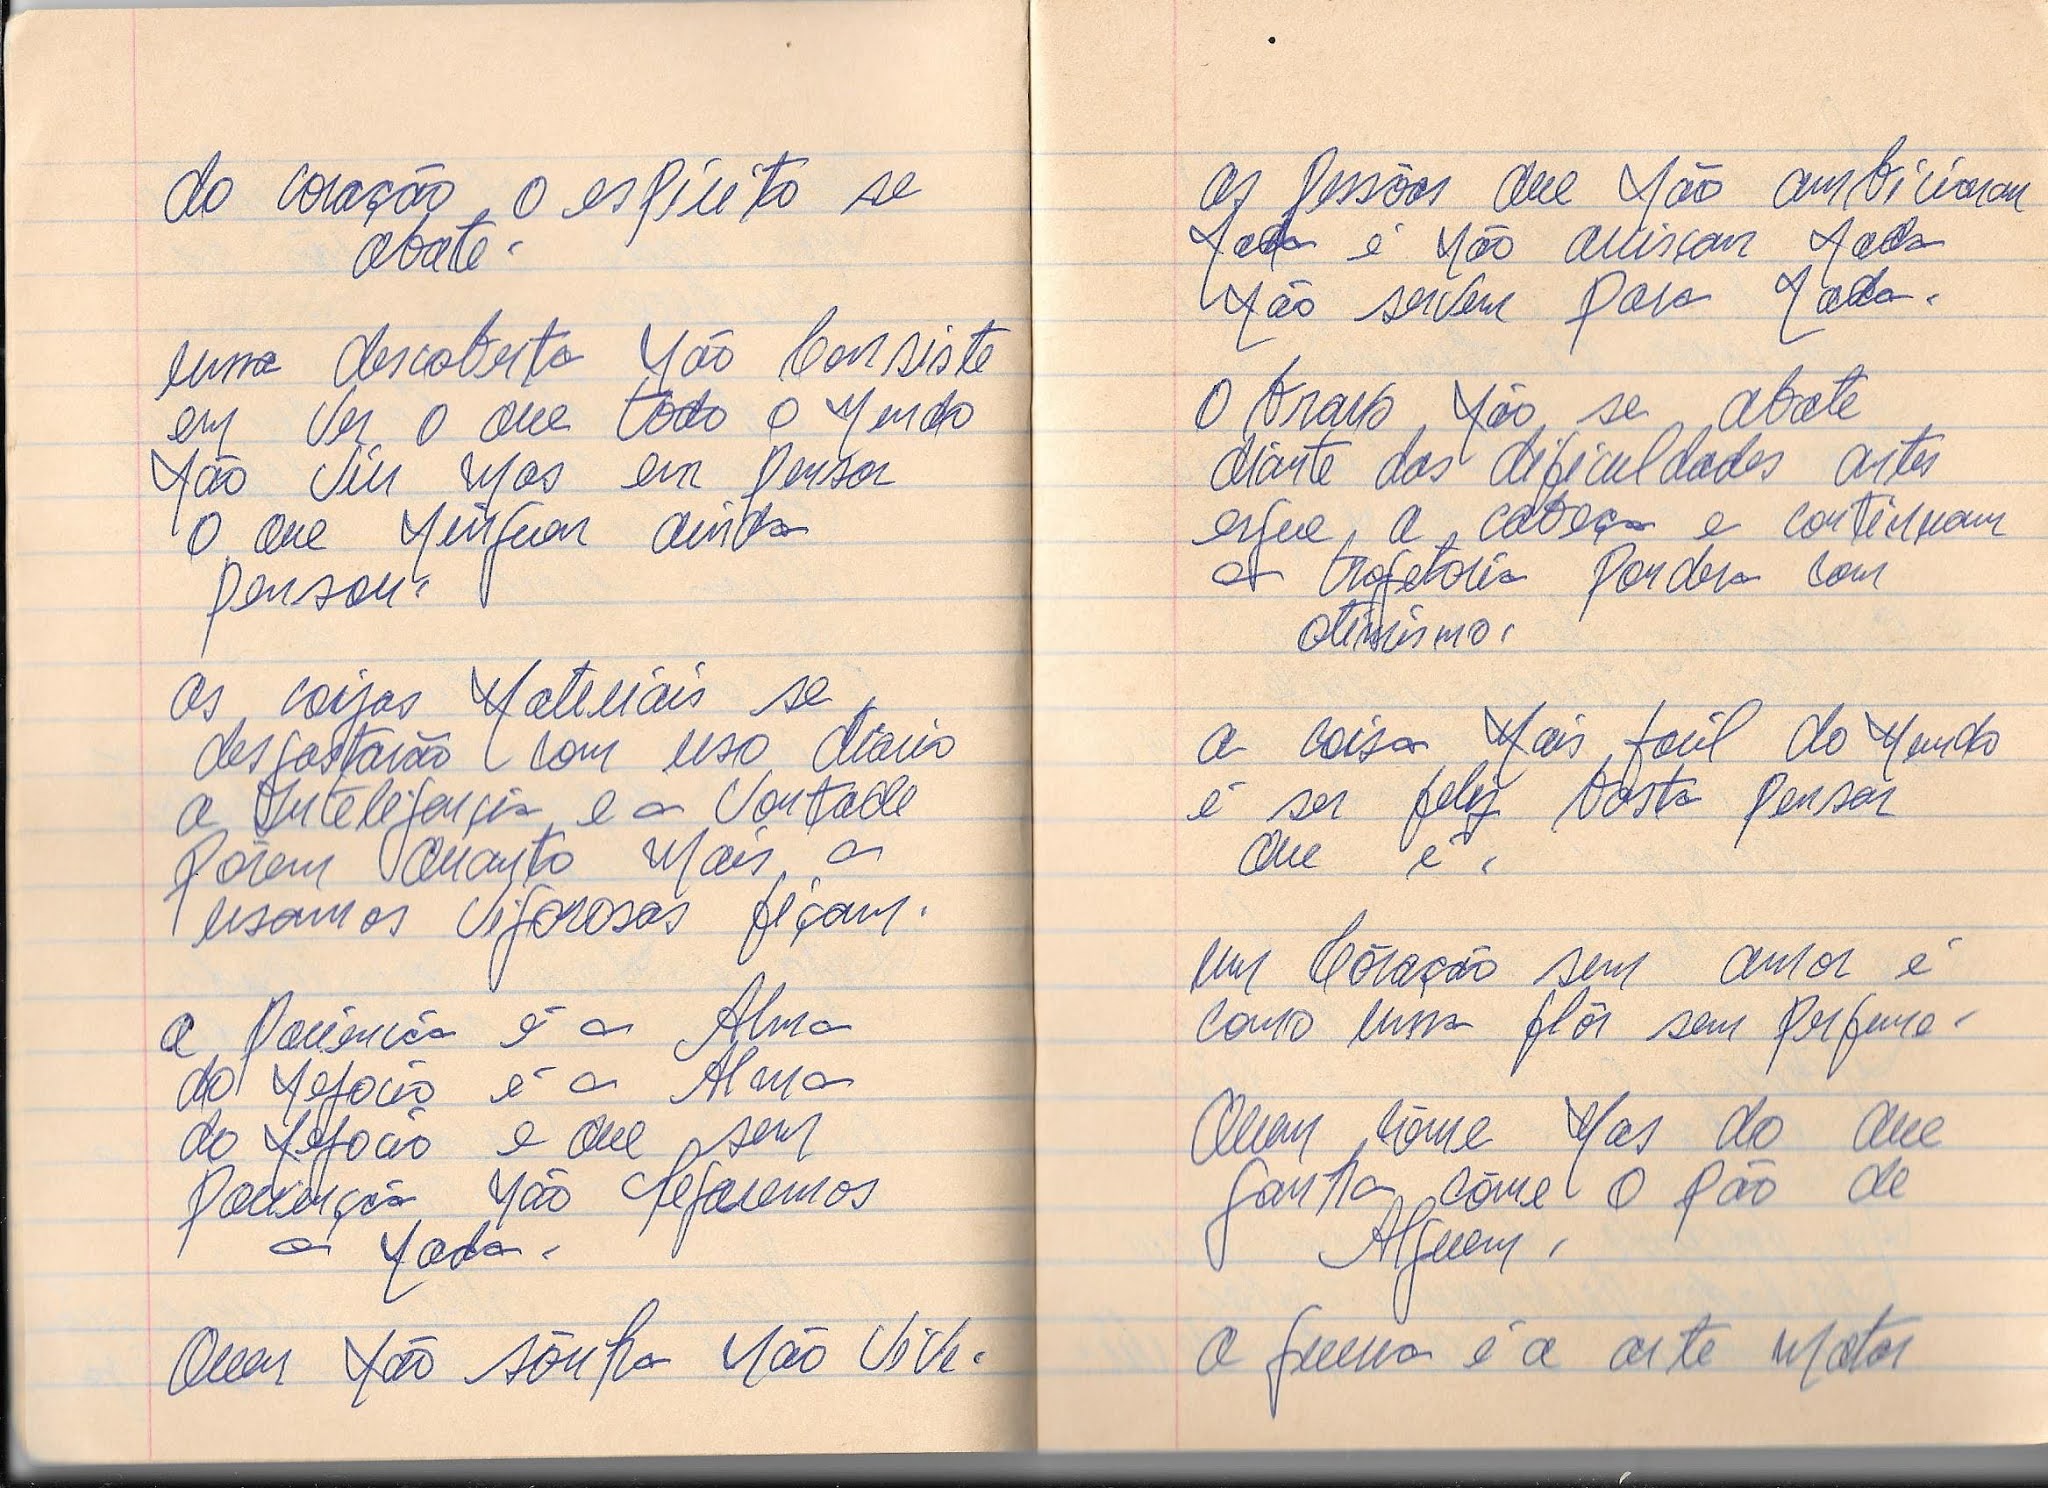 do coração o espírito se
abate.
uma descoberta não Consiste
em ver o que todo o mundo
não viu mas em pensar
o que ninguem ainda
pensou.
as coizas Materiáis se
desgastarão com uso diario
a Inteligençia e a Vontade
porem quanto mais a
usamos vigorosas fiçam.
a Paciência é a Alma
do negocio é a Alma
do negocio e que sem
paciençia não chegaremos
a nada.
Quem não sônha não vive.
as pessôas que não ambicionam
nada é não arriscam nada
não servem para nada.
O bravo não se abate
diante das dificuldades antes
ergue a cabeça e continuam
a trajetoria com
otimismo.
a coisa mais facil do mundo
é ser feliz basta pensar
que é.
um Côração sem amor é
como uma flôr sem perfume.
Quem côme mas do que
ganha côme o pão de
Alguem.
a guerra é a arte matar